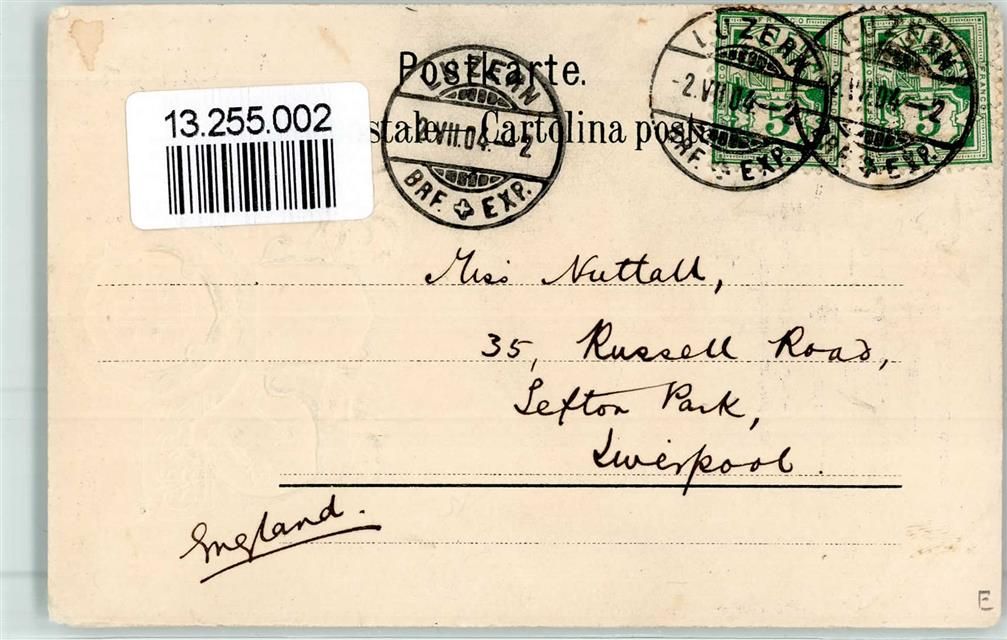 Postkarte.
13.255.002
Cartolina
LUZERN
2.VII.04.-2
BRF. EXP.
LUZERN
-2.VII.04.-2
BRF. EXP.
LUZERN
2.VII.04.-2
BRF. EXP.
FRANCO
5
FRANCO
5
Miss Nuttall,
35, Russell Road,
Sefton Park,
Liverpool.
England.
E